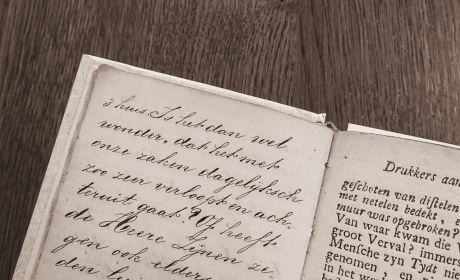 's huis. Is het dan wel
wonder, dat het met
onze zaken dagelijksch
zoo zeer verloopt en ach-
teruit gaat? Of heeft
de Heere Zijnen ze-
gen ook elders
den
Drukkers aan
geschoten van distelen
met netelen bedekt, e
muur was opgebroken?
Van waar kwam die V
groot Verval? immers
Mensche zyn Tyd me
genomen, en
in het wo